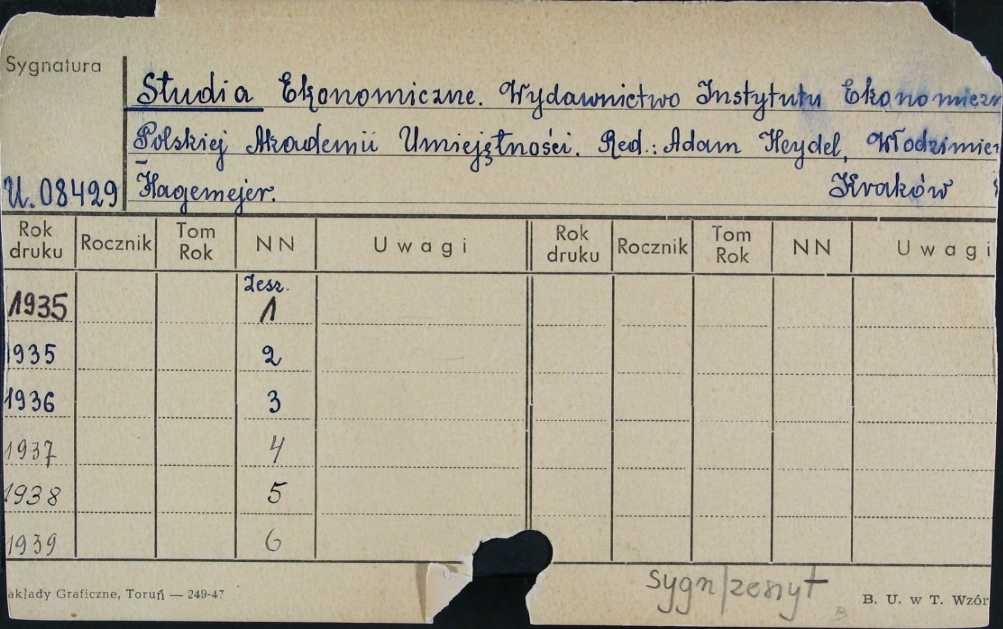 Sygnatura
Studia Ekonomiczne. Wydawnictwo Instytutu
Polskiej Akademii Umiejętności. Red.: Adam Heydel,
U. 08429 Hagemejer. Kraków
Rok druku Rocznik Tom Rok NN Uwagi Rok druku Rocznik Tom Rok NN Uwagi
Zesz.
1935 1
1935 2
1936 3
1937 4
1938 5
1939 6
sygn/zeszyt
akłady Graficzne, Toruń — 249-47 B. U. w T. Wzór